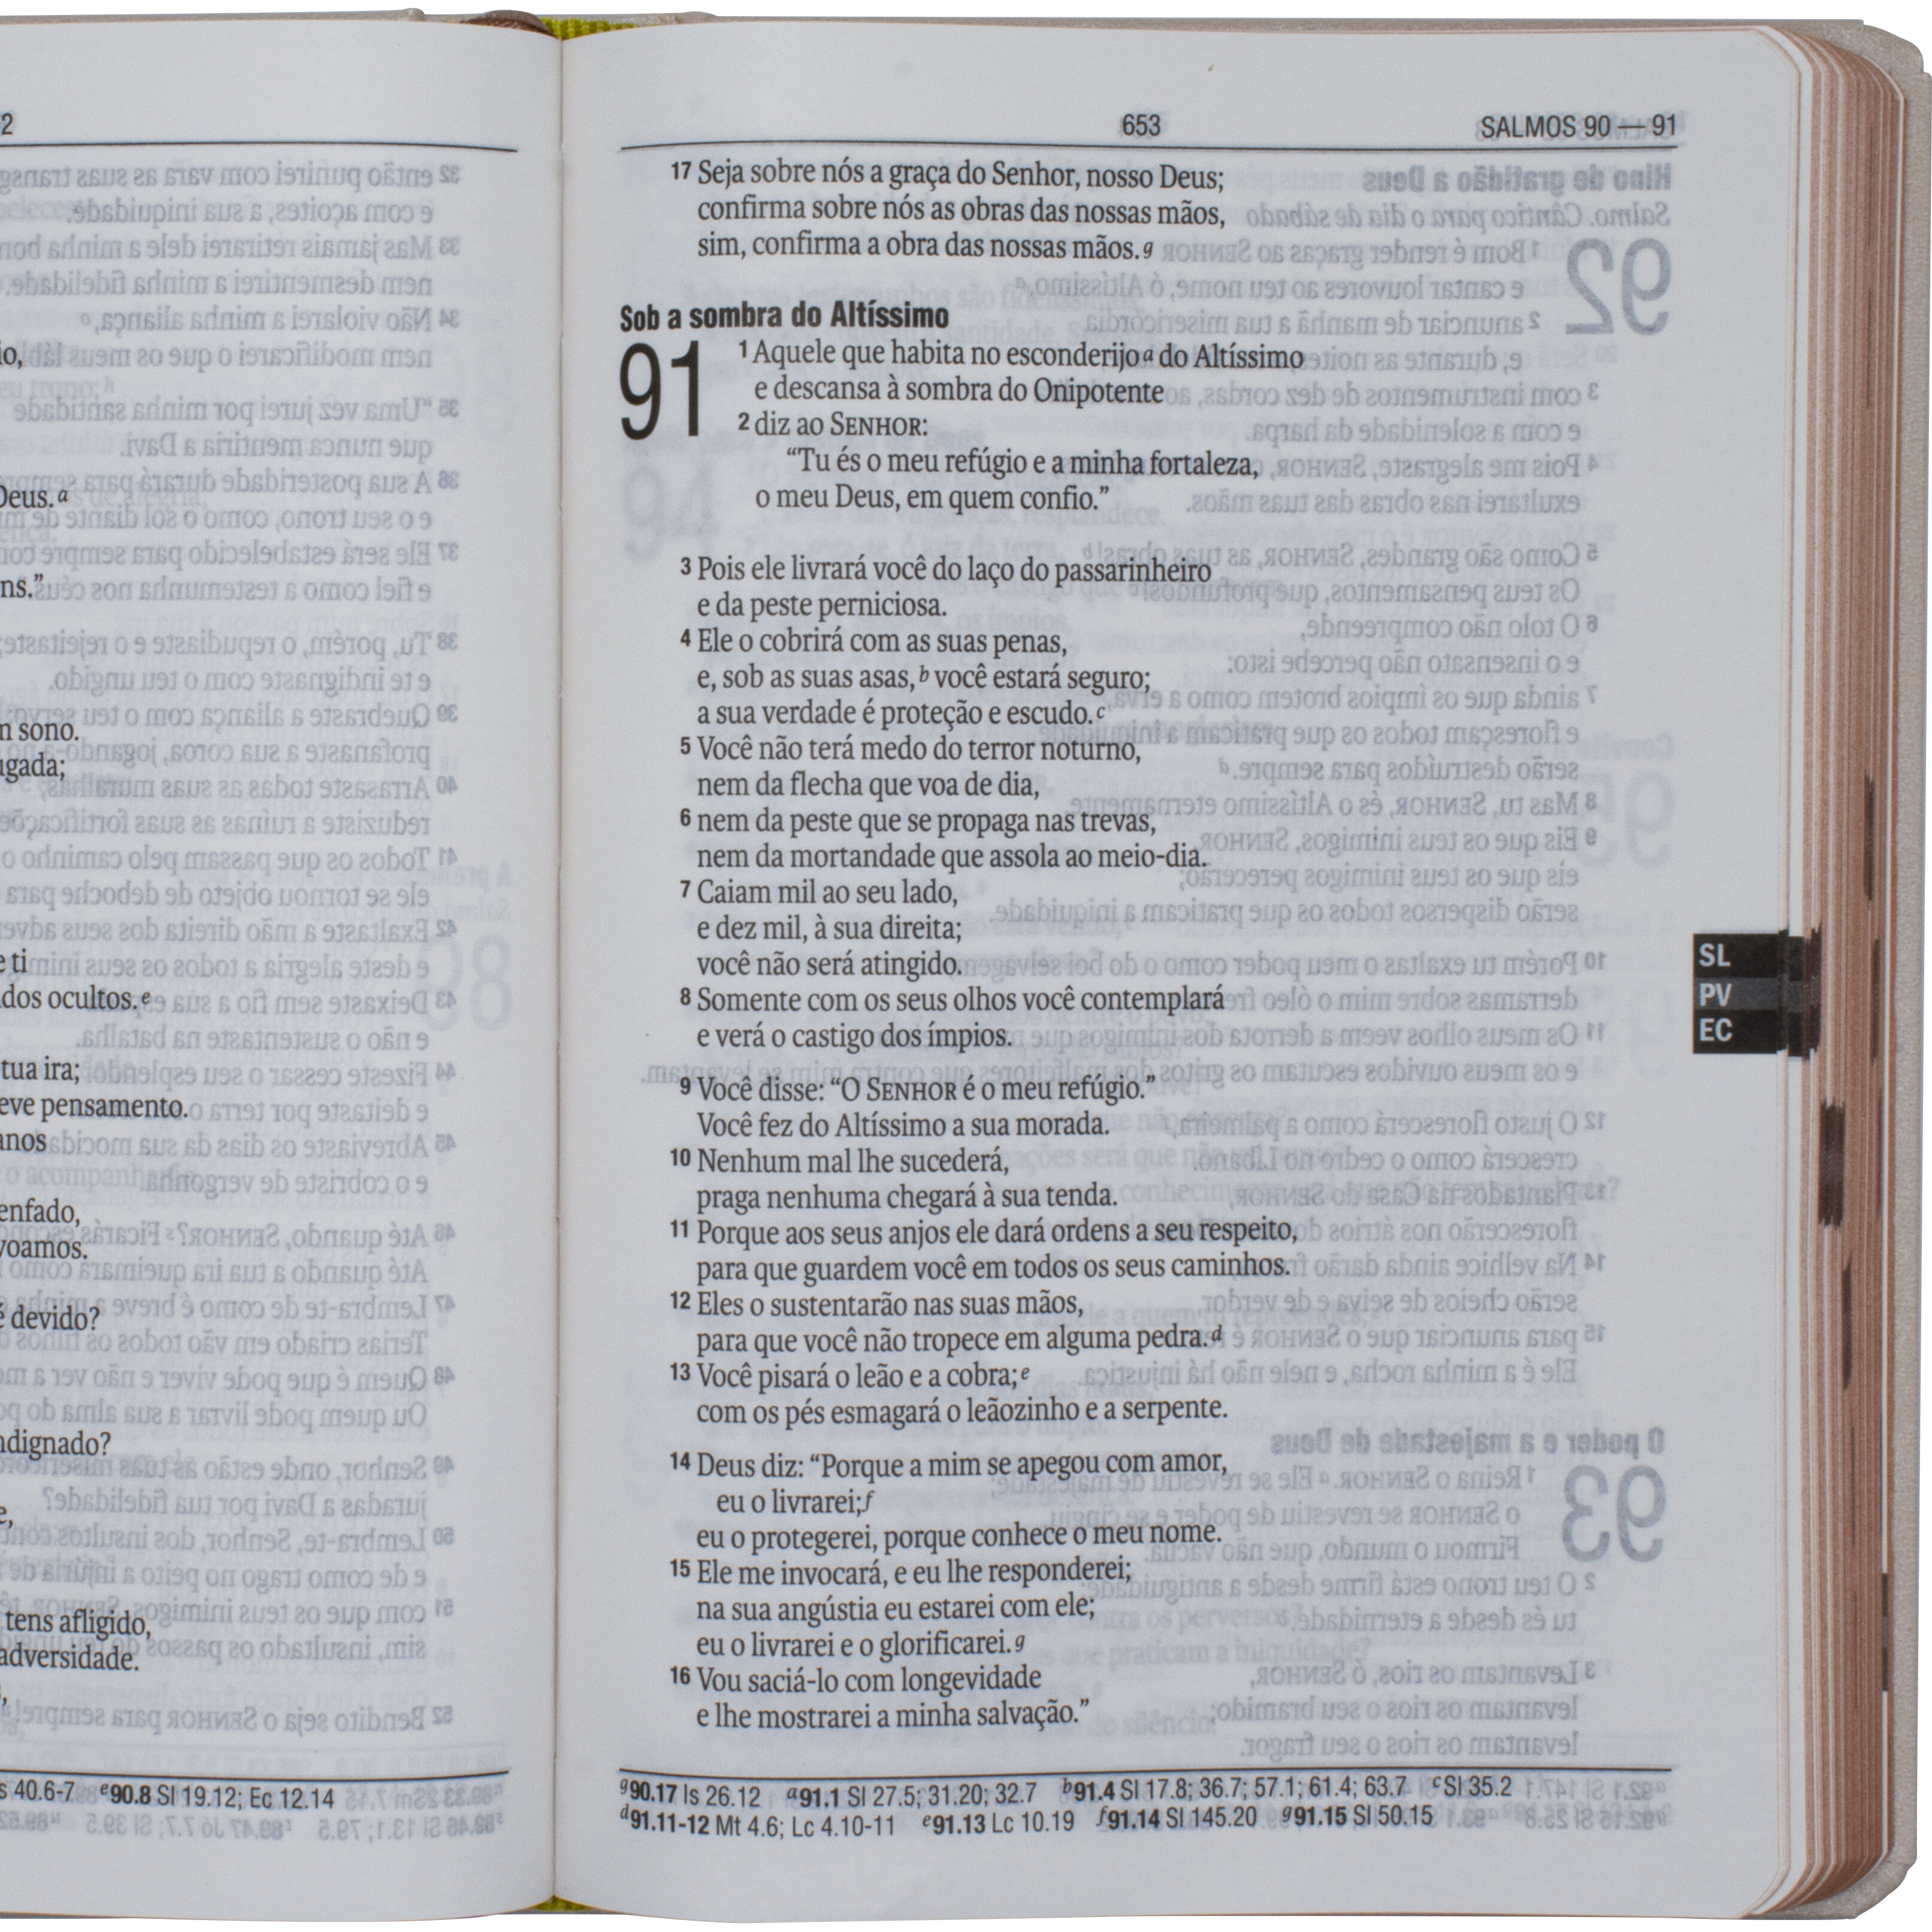 2
io,
Deus.a
ns.”
m sono.
ugada;
e ti
dos ocultos.e
tua ira;
eve pensamento.
anos
enfado,
voamos.
é devido?
ndignado?
e,
tens afligido,
adversidade.
s 40.6-7 e90.8 Sl 19.12; Ec 12.14
653 SALMOS 90 — 91
17 Seja sobre nós a graça do Senhor, nosso Deus;
confirma sobre nós as obras das nossas mãos,
sim, confirma a obra das nossas mãos.g
Sob a sombra do Altíssimo
91
1 Aquele que habita no esconderijoa do Altíssimo
e descansa à sombra do Onipotente
2 diz ao SENHOR:
“Tu és o meu refúgio e a minha fortaleza,
o meu Deus, em quem confio.”
3 Pois ele livrará você do laço do passarinheiro
e da peste perniciosa.
4 Ele o cobrirá com as suas penas,
e, sob as suas asas,b você estará seguro;
a sua verdade é proteção e escudo.c
5 Você não terá medo do terror noturno,
nem da flecha que voa de dia,
6 nem da peste que se propaga nas trevas,
nem da mortandade que assola ao meio-dia.
7 Caiam mil ao seu lado,
e dez mil, à sua direita;
você não será atingido.
8 Somente com os seus olhos você contemplará
e verá o castigo dos ímpios.
9 Você disse: “O SENHOR é o meu refúgio.”
Você fez do Altíssimo a sua morada.
10 Nenhum mal lhe sucederá,
praga nenhuma chegará à sua tenda.
11 Porque aos seus anjos ele dará ordens a seu respeito,
para que guardem você em todos os seus caminhos.
12 Eles o sustentarão nas suas mãos,
para que você não tropece em alguma pedra.d
13 Você pisará o leão e a cobra;e
com os pés esmagará o leãozinho e a serpente.
14 Deus diz: “Porque a mim se apegou com amor,
eu o livrarei;f
eu o protegerei, porque conhece o meu nome.
15 Ele me invocará, e eu lhe responderei;
na sua angústia eu estarei com ele;
eu o livrarei e o glorificarei.g
16 Vou saciá-lo com longevidade
e lhe mostrarei a minha salvação.”
g90.17 Is 26.12 a91.1 Sl 27.5; 31.20; 32.7 b91.4 Sl 17.8; 36.7; 57.1; 61.4; 63.7 cSl 35.2
d91.11-12 Mt 4.6; Lc 4.10-11 e91.13 Lc 10.19 f91.14 Sl 145.20 g91.15 Sl 50.15
SL
PV
EC